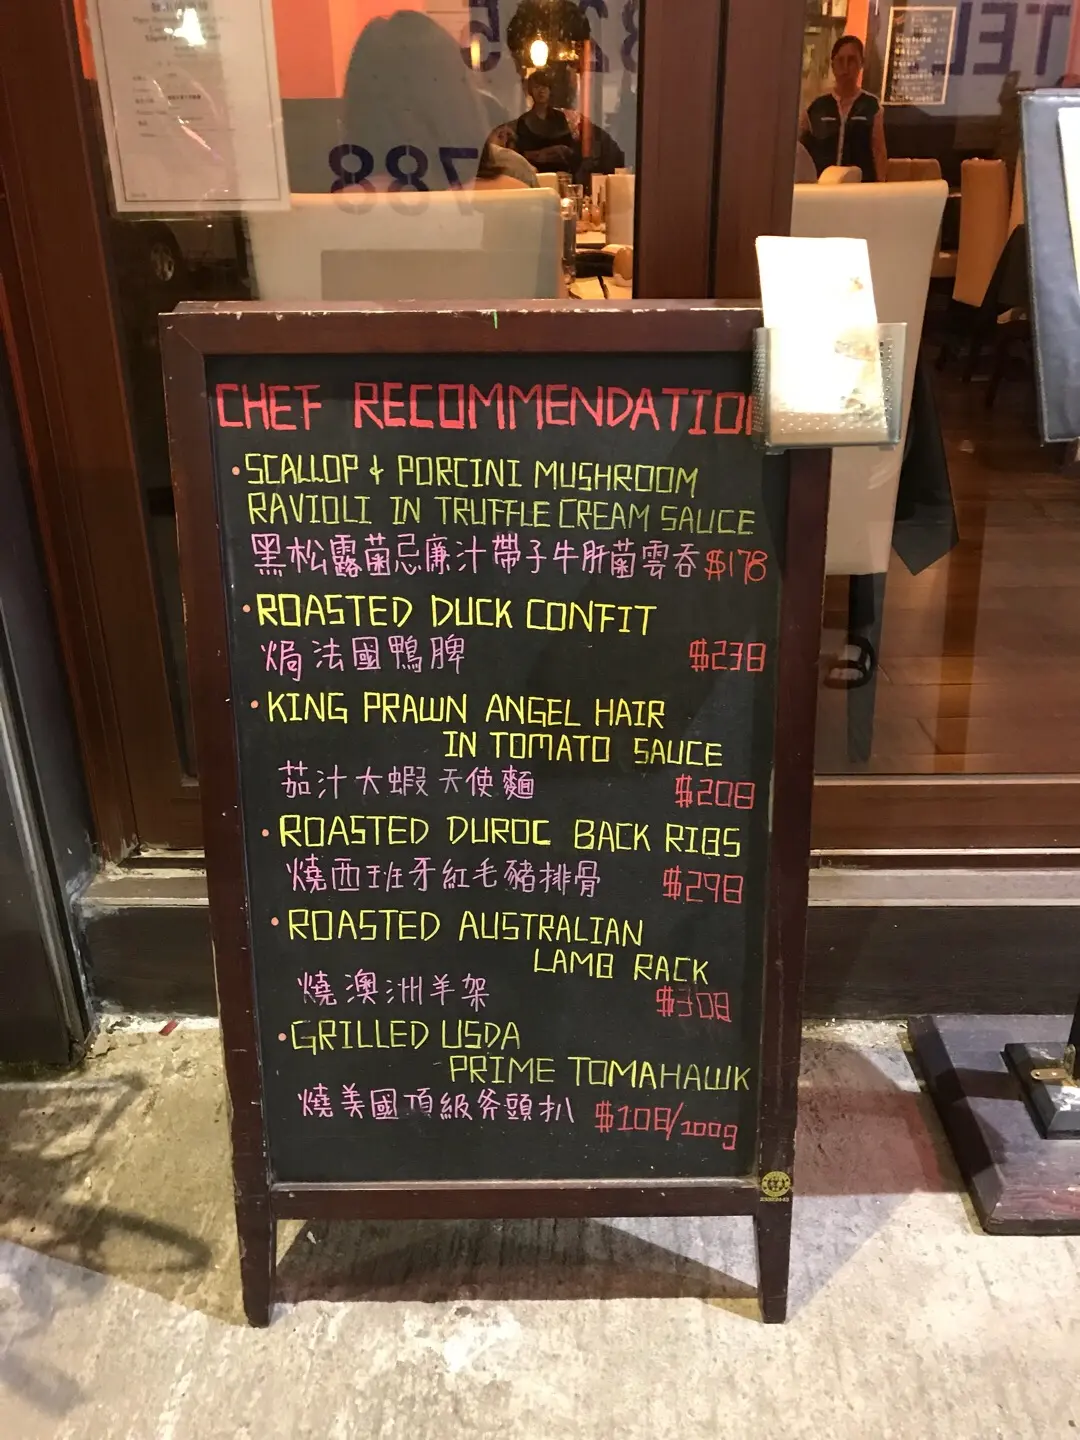 TEL
8225
788
CHEF RECOMMENDATION
• SCALLOP & PORCINI MUSHROOM
RAVIOLI IN TRUFFLE CREAM SAUCE
黑松露菌忌廉汁帶子牛肝菌雲吞 $178
• ROASTED DUCK CONFIT
焗法國鴨脾 $238
• KING PRAWN ANGEL HAIR
IN TOMATO SAUCE
茄汁大蝦天使麵 $208
• ROASTED DUROC BACK RIBS
燒西班牙紅毛豬排骨 $298
• ROASTED AUSTRALIAN
LAMB RACK
燒澳洲羊架 $308
• GRILLED USDA
PRIME TOMAHAWK
燒美國頂級斧頭扒 $108/100g